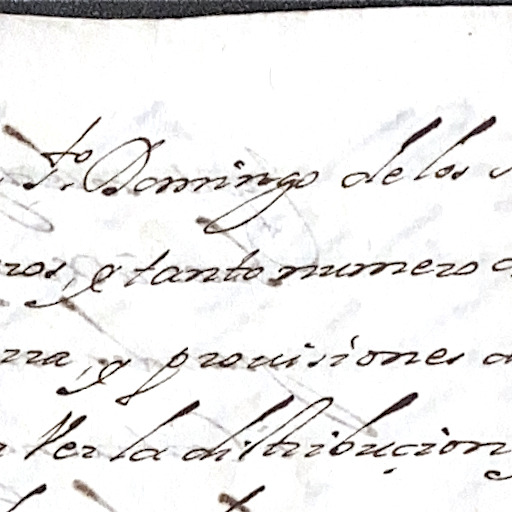 Sto. Domingo de los
ros, y tanto numero
rra, y provisiones
Ver la distribuçion